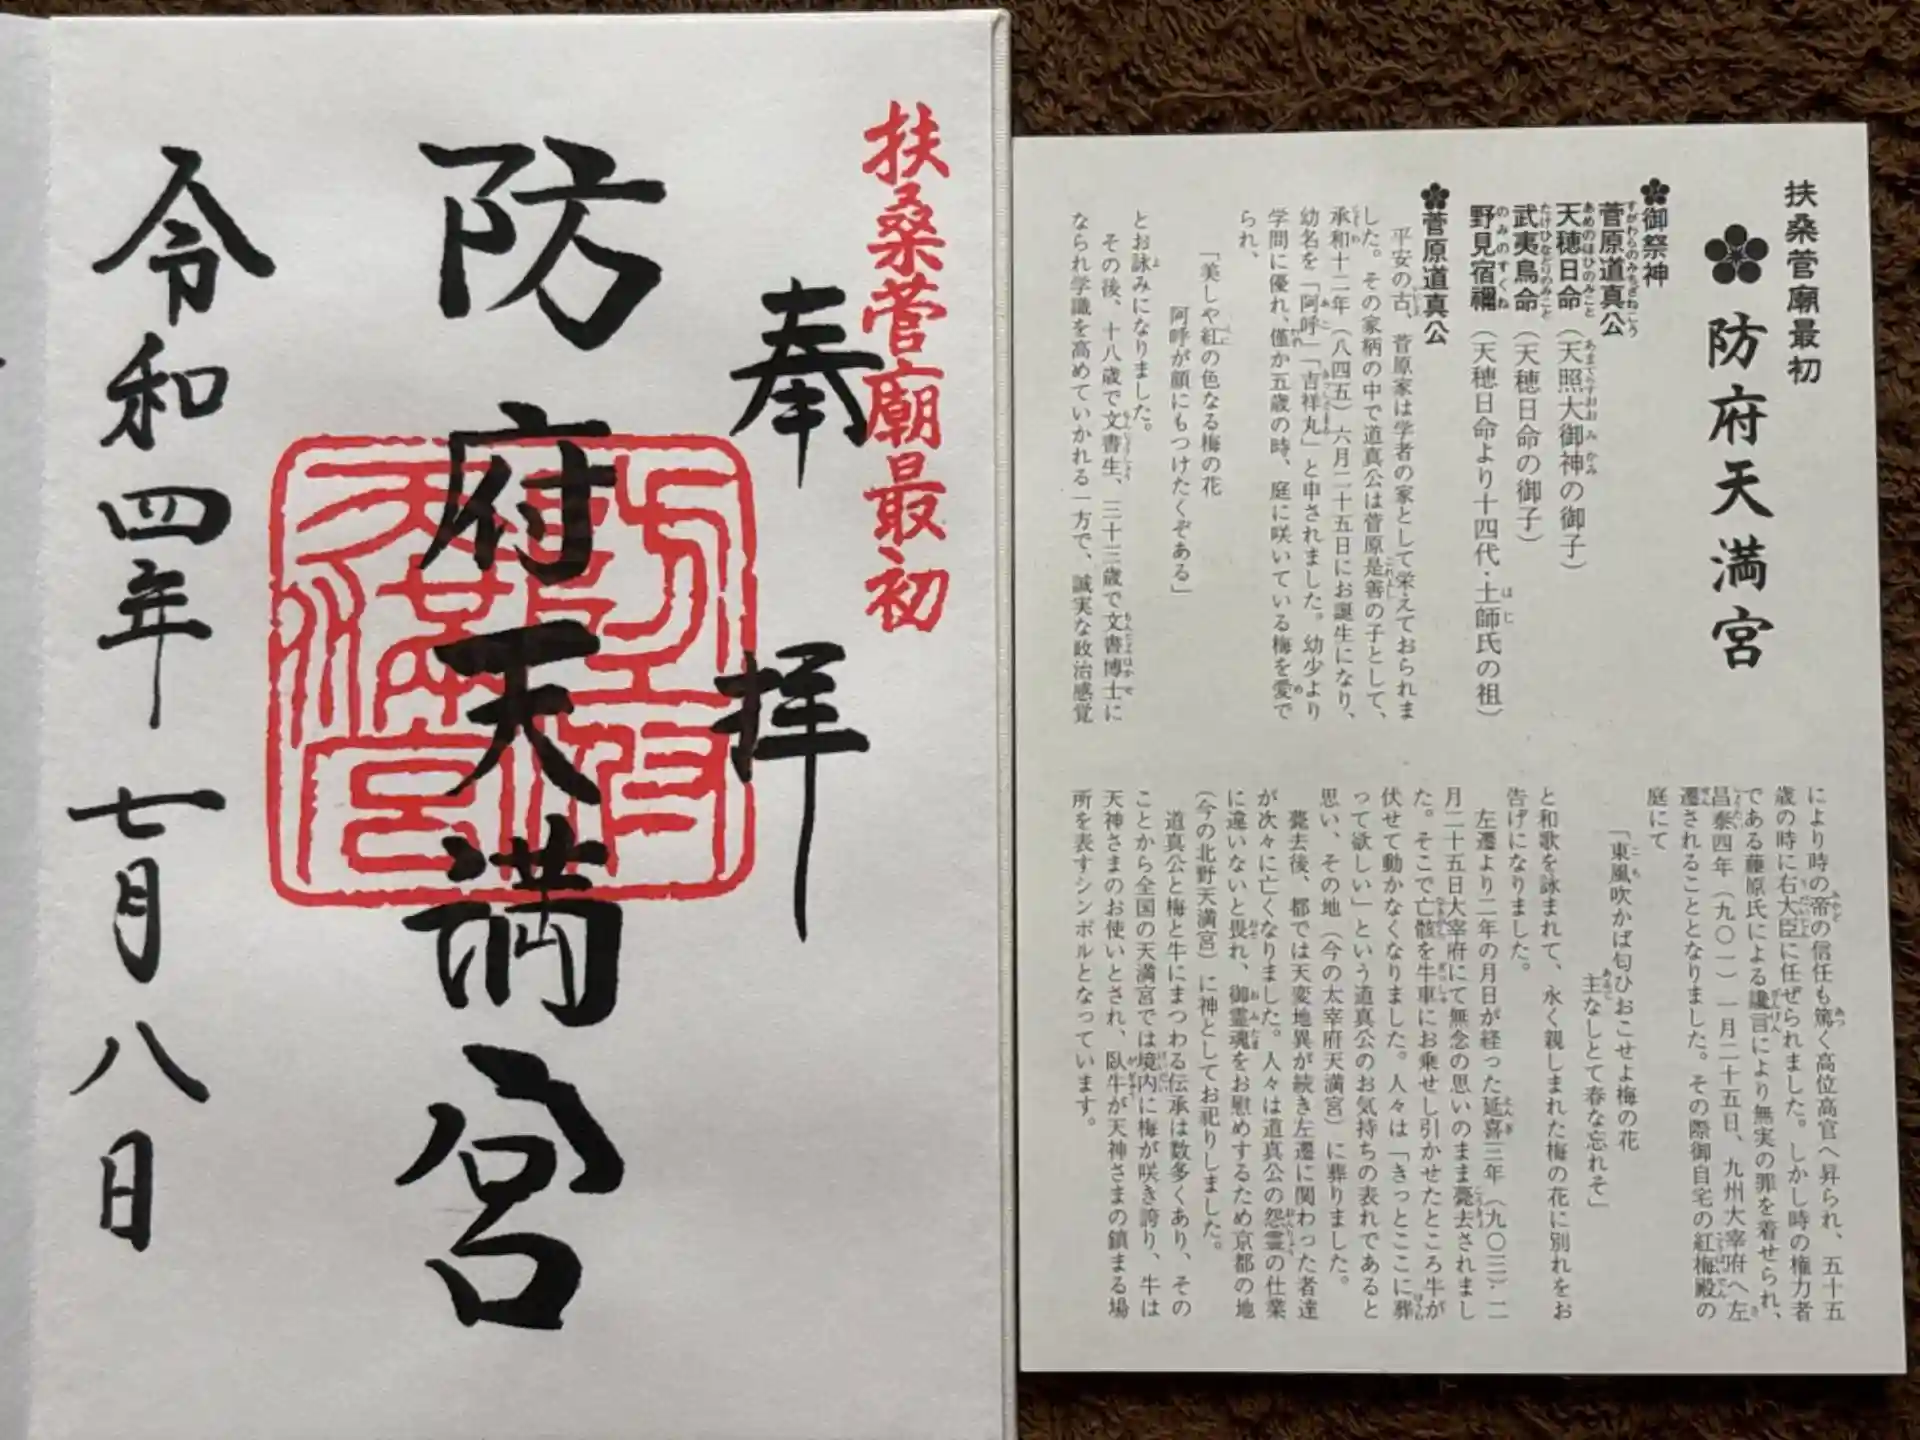 扶桑菅廟最初
奉拝
防府天満宮
令和四年七月八日
扶桑菅廟最初
防府天満宮
御祭神
菅原道真公
天穂日命(天照大御神の御子)
武夷鳥命(天穂日命の御子)
野見宿禰(天穂日命より十四代・土師氏の祖)
菅原道真公
平安の古、菅原家は学者の家として栄えておられま
した。その家柄の中で道真公は菅原是善の子として、
承和十二年(八四五)六月二十五日にお誕生になり、
幼名を「阿呼」「吉祥丸」と申されました。幼少より
学問に優れ、僅か五歳の時、庭に咲いている梅を愛で
られ、
「美しや紅の色なる梅の花
阿呼が顔にもつけたくぞある」
とお詠みになりました。
その後、十八歳で文書生、三十三歳で文書博士に
なられ学識を高めていかれる一方で、誠実な政治感覚
により時の帝の信任も篤く高位高官へ昇られ、五十五
歳の時に右大臣に任ぜられました。しかし時の権力者
である藤原氏による讒言により無実の罪を着せられ、
昌泰四年(九〇一)一月二十五日、九州大宰府へ左
遷されることとなりました。その際御自宅の紅梅殿の
庭にて
「東風吹かば匂ひおこせよ梅の花
主なしとて春な忘れそ」
と和歌を詠まれて、永く親しまれた梅の花に別れをお
告げになりました。
左遷より二年の月日が経った延喜三年(九〇三)二
月二十五日大宰府にて無念の思いのまま薨去されまし
た。そこで亡骸を牛車にお乗せし引かせたところ牛が
伏せて動かなくなりました。人々は「きっとここに葬
って欲しい」という道真公のお気持ちの表れであると
思い、その地(今の太宰府天満宮)に葬りました。
薨去後、都では天変地異が続き左遷に関わった者達
が次々に亡くなりました。人々は道真公の怨霊の仕業
に違いないと畏れ、御霊魂をお慰めするため京都の地
(今の北野天満宮)に神としてお祀りしました。
道真公と梅と牛にまつわる伝承は数多くあり、その
ことから全国の天満宮では境内に梅が咲き誇り、牛は
天神さまのお使いとされ、臥牛が天神さまの鎮まる場
所を表すシンボルとなっています。